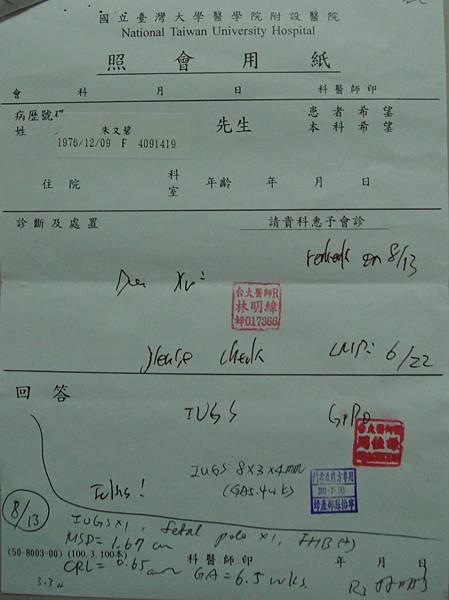 國立臺灣大學醫學院附設醫院
National Taiwan University Hospital
照會用紙
會 科 月 日 科醫師印
病歷號
姓
朱文碧
1976/12/09 F 4091419
先生
患者希望
本科希望
住院 科室 年齡 年 月 日
診斷及處置 請貴科惠予會診
recheck on 8/13
Dear
台大醫師R
林明緯
婦017366
please check LMP: 6/22
回答
IUGS G1P0
IUGS 8×3×4mm
(GA5.4wk)
8/13
IUGS×1, fetal pole ×1, FHB(+)
MSD=1.67cm
(50-8003-00) (100.3.100本) 科醫師印 年 月 日
CRL=0.65cm GA=6.5wks